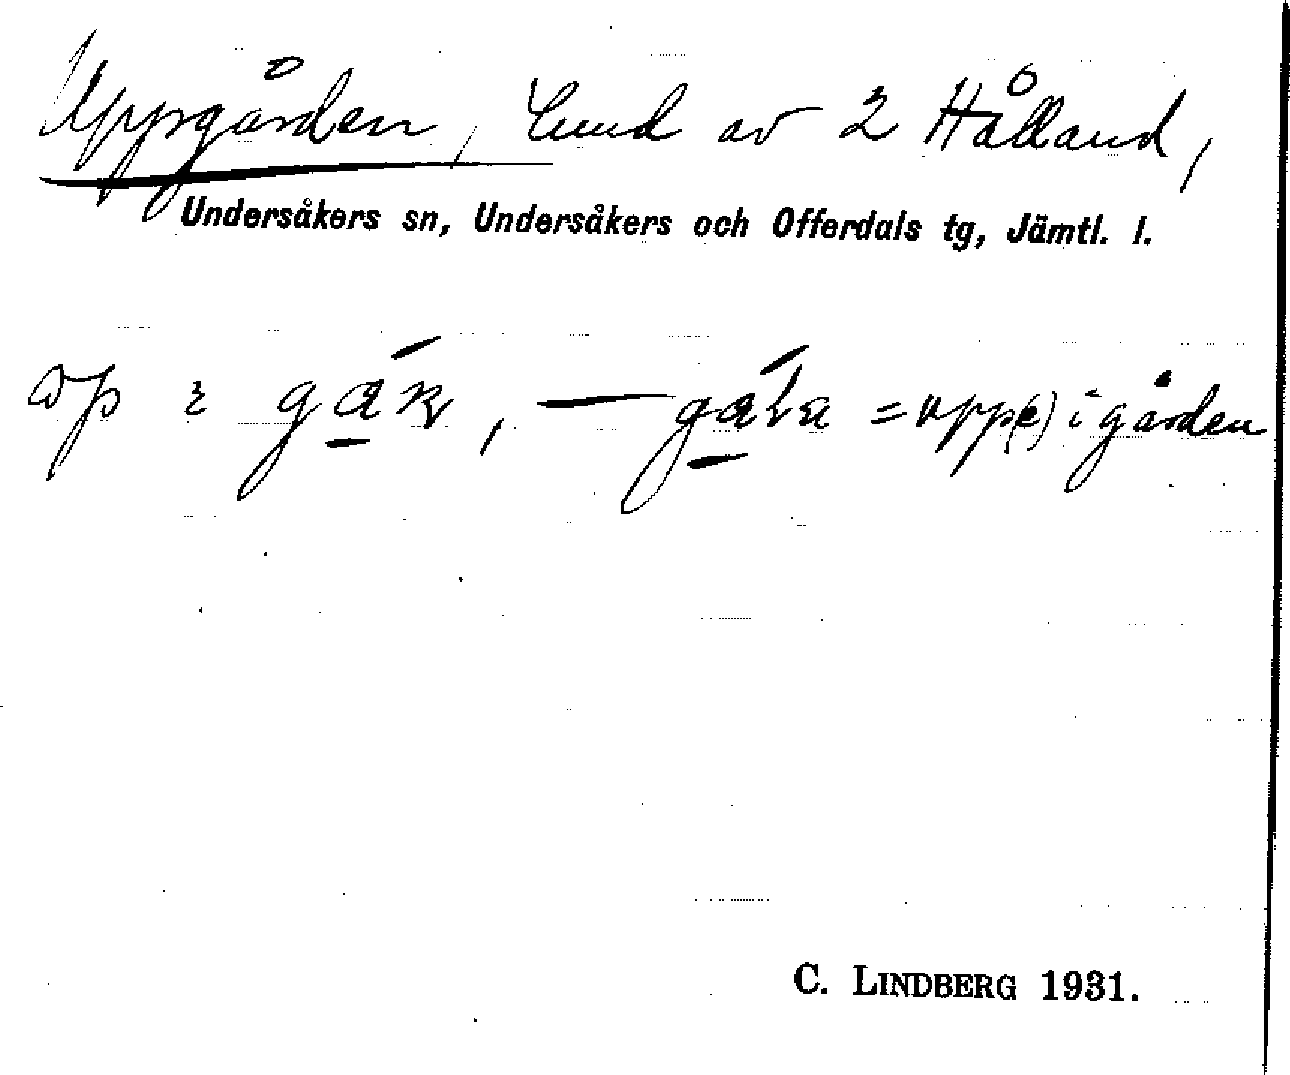 Uppgården, lund av 2 Hålland,
Undersåkers sn, Undersåkers och Offerdals tg, Jämtl. l.
= upp(e) i gården
C. LINDBERG 1931.